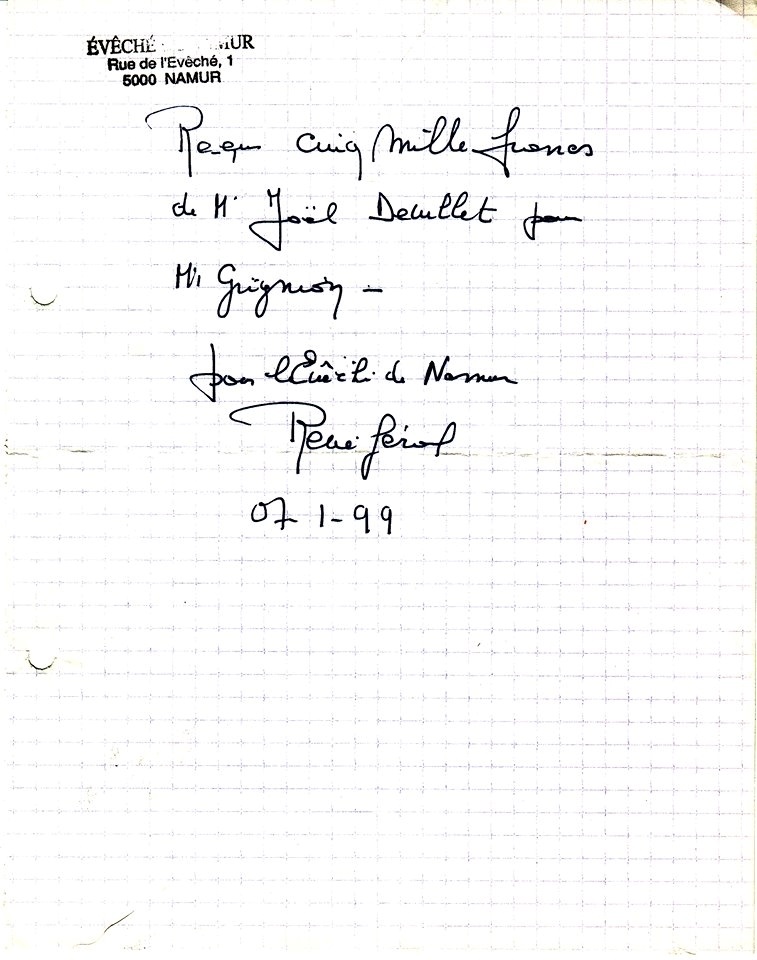 ÉVÊCHÉ
Rue de l'Evêché, 1
5000 NAMUR
Reçu cinq mille francs
de Mr Joël Decullet pour
Mr Grignion -
pour l'Évêché de Namur
René Gérard
07 1-99